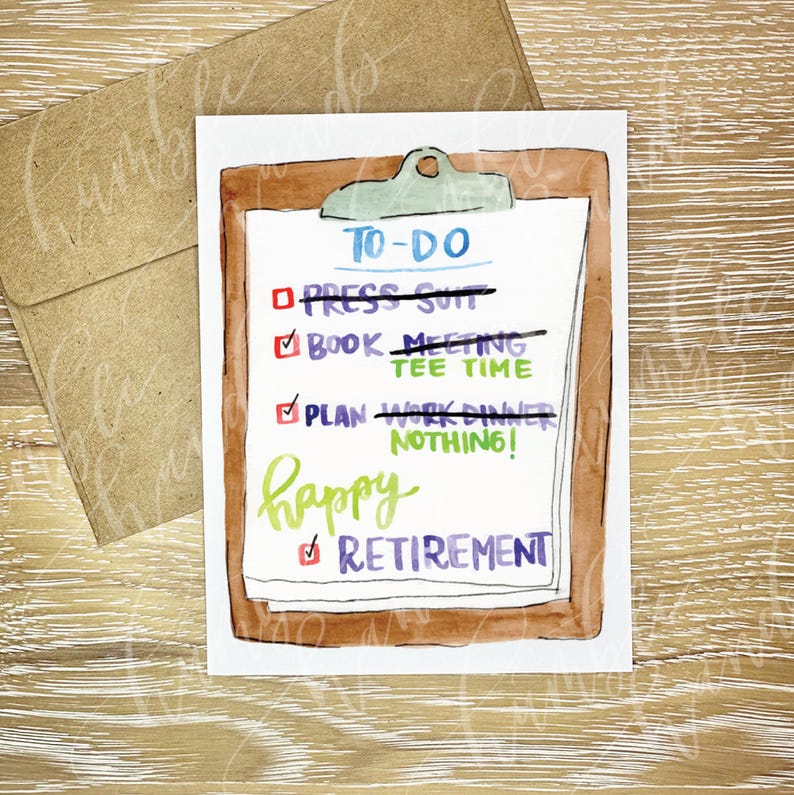 TO-DO
PRESS SUIT
BOOK MEETING
TEE TIME
PLAN WORK DINNER
NOTHING!
happy
RETIREMENT
humble hands